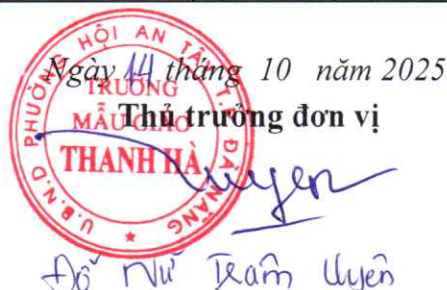 Ngày 14 tháng 10 năm 2025
Thủ trưởng đơn vị
U.B.N.D PHƯỜNG HỘI AN TÂY T.P ĐÀ NẴNG
TRƯỜNG
MẪU GIÁO
THANH HÀ
Uyen
Đỗ Nữ Trâm Uyên